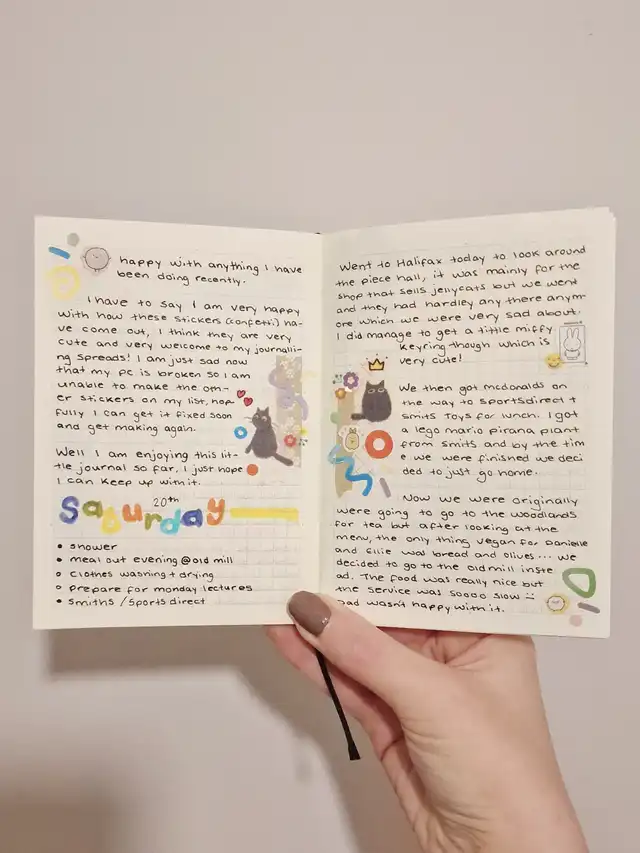 happy with anything I have
been doing recently.
I have to say I am very happy
with how these stickers (confetti) ha-
ve come out, I think they are very
cute and very welcome to my journalli-
ng spreads! I am just sad now
that my pc is broken so I am
unable to make the oth-
er stickers on my list, hop
fully I can get it fixed soon
and get making again.
Well I am enjoying this lit-
tle journal so far, I just hope
I can keep up with it.
20th
Saturday
• shower
• meal out evening @ old mill
• clothes washing + drying
• prepare for monday lectures
• smiths / sports direct
Went to Halifax today to look around
the piece hall, it was mainly for the
shop that sells jellycats but we went
and they had hardley any there anym-
ore which we were very sad about,
I did manage to get a little miffy
keyring though which is
very cute!
We then got mcdonalds on
the way to sportsdirect +
smits Toys for lunch. I got
a lego mario pirana plant
from smits and by the tim
e we were finished we deci
ded to just go home.
Now we were originally
were going to go to the woodlands
for tea but after looking at the
menu, the only thing vegan for Danielle
and Ellie was bread and olives... we
decided to go to the old mill inste
ad. The food was really nice but
the service was soooo slow :(
Dad wasn't happy with it.